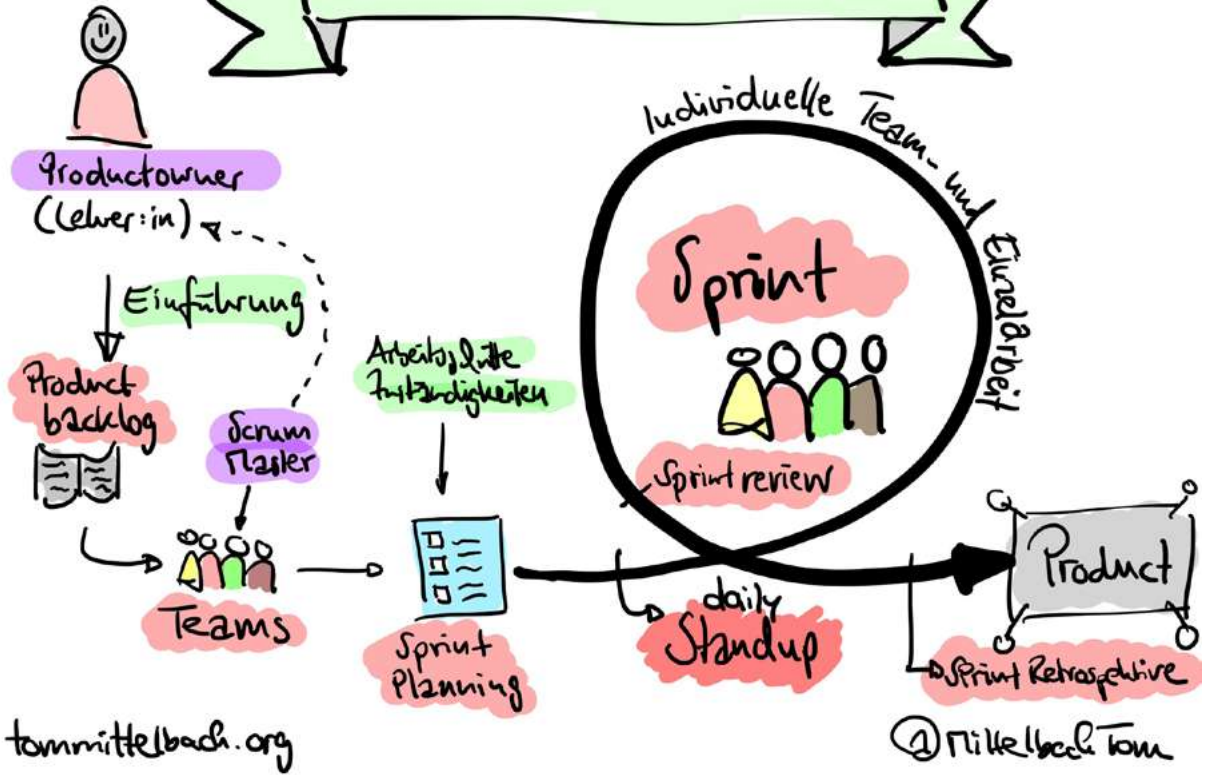 Productowner
(Lehrer:in)
Einführung
Product
backlog
Scrum
Master
Teams
Arbeitsschritte
Zuständigkeiten
Sprint
Planning
Individuelle Team- und Einzelarbeit
Sprint
Sprint review
daily
Standup
Product
Sprint Retrospektive
tommittelbach.org
@MittelbachTom